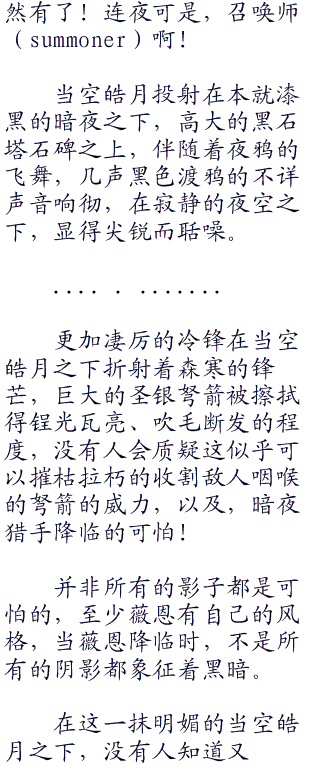 然有了！连夜可是，召唤师
（summoner）啊！
当空皓月投射在本就漆
黑的暗夜之下，高大的黑石
塔石碑之上，伴随着夜鸦的
飞舞，几声黑色渡鸦的不详
声音响彻，在寂静的夜空之
下，显得尖锐而聒噪。
.... . .......
更加凄厉的冷锋在当空
皓月之下折射着森寒的锋
芒，巨大的圣银弩箭被擦拭
得锃光瓦亮、吹毛断发的程
度，没有人会质疑这似乎可
以摧枯拉朽的收割敌人咽喉
的弩箭的威力，以及，暗夜
猎手降临的可怕！
并非所有的影子都是可
怕的，至少薇恩有自己的风
格，当薇恩降临时，不是所
有的阴影都象征着黑暗。
在这一抹明媚的当空皓
月之下，没有人知道又